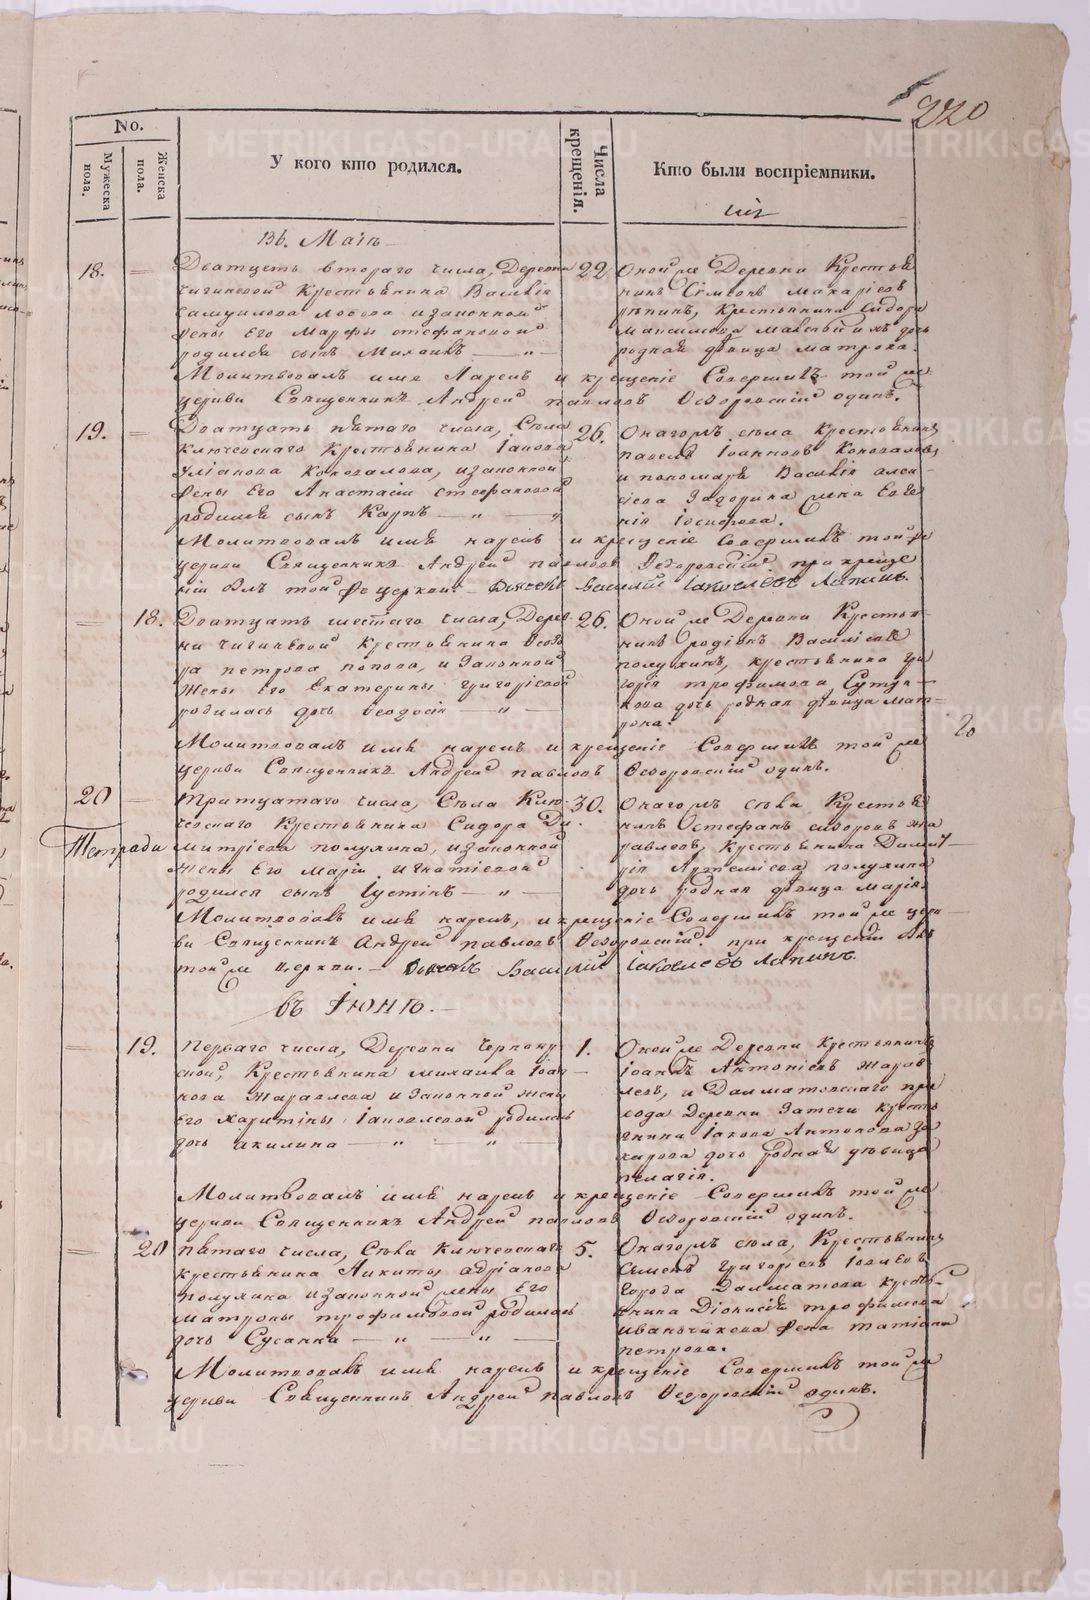 220
No.
Мужеска пола.
Женска пола.
У кого кто родился.
Числа крещенія.
Кто были воспріемники.
Въ Маiѣ
18.
Дватцеть втораго числа, Деревни
Чигиневой Крестьянина Василія
Самуилова и законной
жены Его Марфы Стефановой
родился сынъ Михаилъ
22
Оной же Деревни Крестья
нинъ Сімеонъ Макаріевъ
крестьянина Сидора
дочь
родная дѣвица матрона.
Молитвовалъ имя Нарекъ и крещеніе Совершилъ той же
церкви Священникъ Андрей павловъ Ѳедоровскій одинъ.
19.
Дватцать пятаго числа, Села
Ключевскаго Крестьянина Іанова
Уліанова Коновалова, и законной
жены Его Анастасіи Стефановой
родился сынъ Карпъ
26.
Онагожъ села крестьянинъ
павелъ Іоанновъ Коноваловъ
и пономаря Василія Алек-
сіева Задорина жена Евге
нія Іосифова.
Молитвовалъ имя нарекъ и крещеніе Совершилъ той же
церкви Священникъ Андрей павловъ Ѳедоровскій при креще
ніи былъ той же церкви Дьячекъ Василій Іаковлевъ Лапинъ.
18.
Дватцать шестаго числа, Дерев
ни Чигиневой крестьянина Ѳедо
ра петрова попова, и Законной
Жены Его Екатерины григоріевой
родилась дочь Ѳеодосія
26.
Оной же Деревни Крестья-
нинъ родіонъ Василіевъ
полухинъ, крестьянина гри
горія трофимова Сутуга
кова дочь родная дѣвица мат-
рона.
Молитвовалъ имя нарекъ и крещеніе Совершилъ той же
церкви Священникъ Андрей павловъ Ѳедоровскій одинъ.
20
20
Тетради
Тритцатаго числа, Села Клю-
чевскаго Крестьянина Сидора Ди
митріева полухина, и законной
жены Его Маріи Игнатіевой
родился сынъ Іустинъ
30.
Онагожъ села Крестья
нинъ Стефанъ сидоровъ жу
равлевъ, Крестьянина Димит-
рія Артеміева полухина
дочь родная дѣвица марія.
Молитвовалъ имя нарекъ, и крещеніе Совершилъ той же церк
ви Священникъ Андрей павловъ Ѳедоровскій. при крещеніи былъ
той же церкви. Дьячекъ Василій Іаковлевъ Лапинъ.
въ Іюнѣ.
19.
перваго числа, Деревни
Крестьянина михаила Іоан
нова Журавлева и Законной жены
Его харитины Іаковлевой родилась
дочь акилина
1.
Оной же Деревни крестьянинъ
Іоаннъ Антоніевъ журав
левъ, и Далматовскаго при
хода Деревни Затечи кресть
янина Іакова Антонова За
харова дочь родная дѣвица
пелагія.
Молитвовалъ имя нарекъ и крещеніе Совершилъ той же
церкви Священникъ Андрей павловъ Ѳедоровскій одинъ.
20
пятаго числа, Села Ключевскаго
крестьянина Никиты Адріанова
полухина и законной жены Его
матроны трофимовой родилась
дочь Сусанна
5.
Онагожъ села, Крестьянинъ
Семенъ григоріевъ
города Далматова кресть-
янина Діонисія трофимова
Иванчикова жена татіана
петрова.
Молитвовалъ имя нарекъ и крещеніе Совершилъ той же
церкви Священникъ Андрей павловъ Ѳедоровскій одинъ.
METRIKI.GASO-URAL.RU